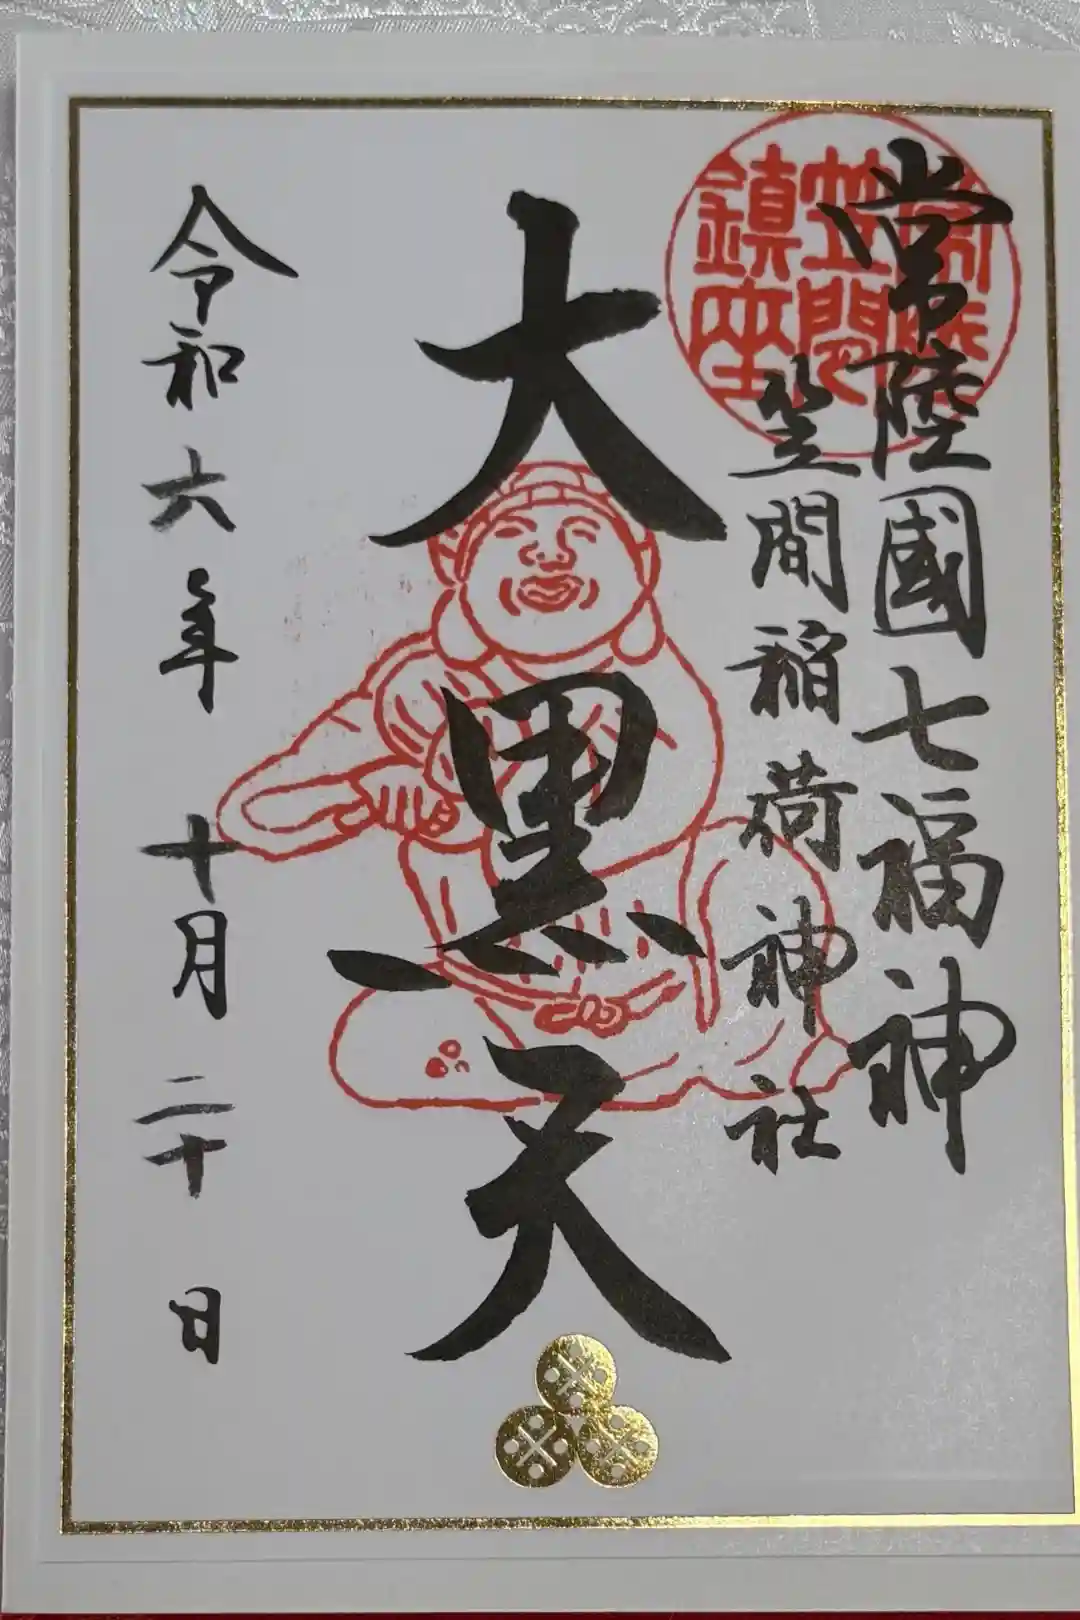 常陸國七福神
笠間稲荷神社
常陸
笠間
鎮座
大黒天
令和六年 十月二十日